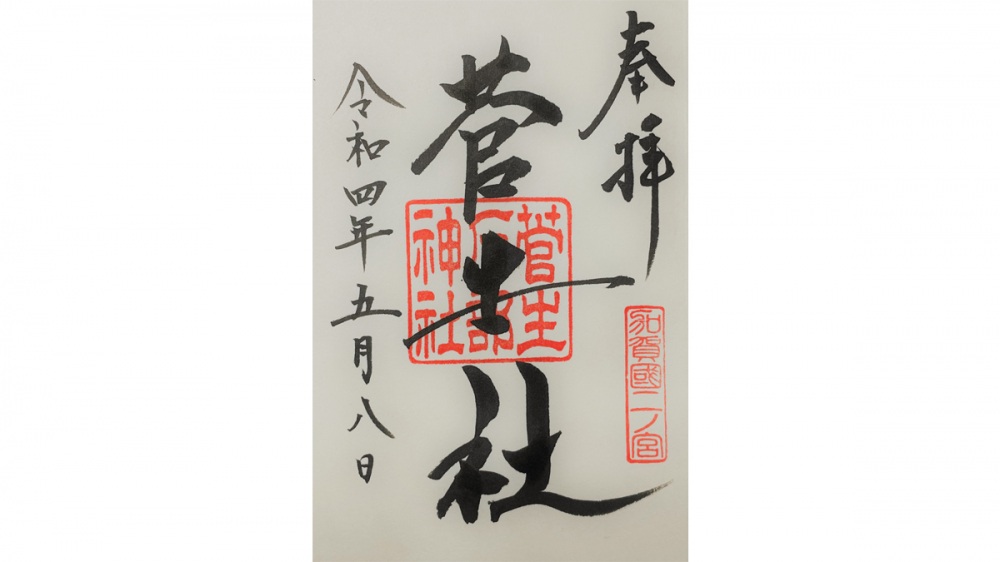 奉拝
加賀國二ノ宮
菅生社
菅生
石部
神社
令和四年五月八日